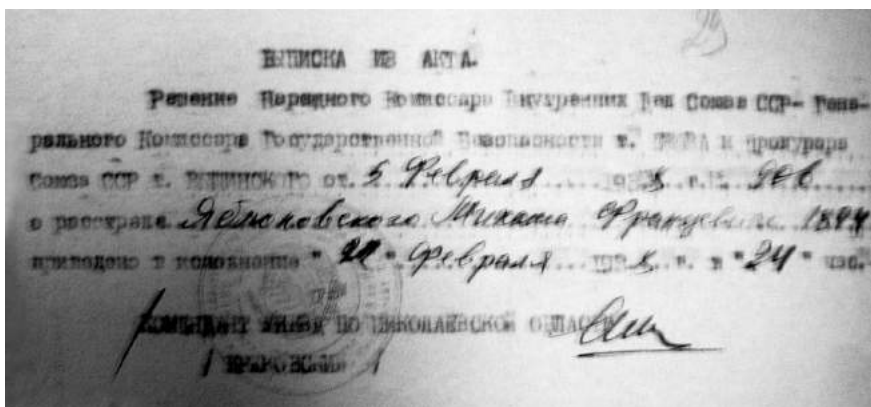 29
ВЫПИСКА ИЗ АКТА.
Решение Народного Комиссара Внутренних Дел Союза ССР- Гене-
рального Комиссара Государственной Безопасности т. ЕЖОВА и Прокурора
Союза ССР т. ВЫШИНСКОГО от. 5 Февраля .... 193 8 .г. № 906 ....
о расстреле Яблоновского Михаила Францевича 1884
приведено в исполнение " 22 " Февраля ... 193 8 . г. в " 24 " час.
КОМЕНДАНТ УНКВД ПО НИКОЛАЕВСКОЙ ОБЛАСТИ
/ /